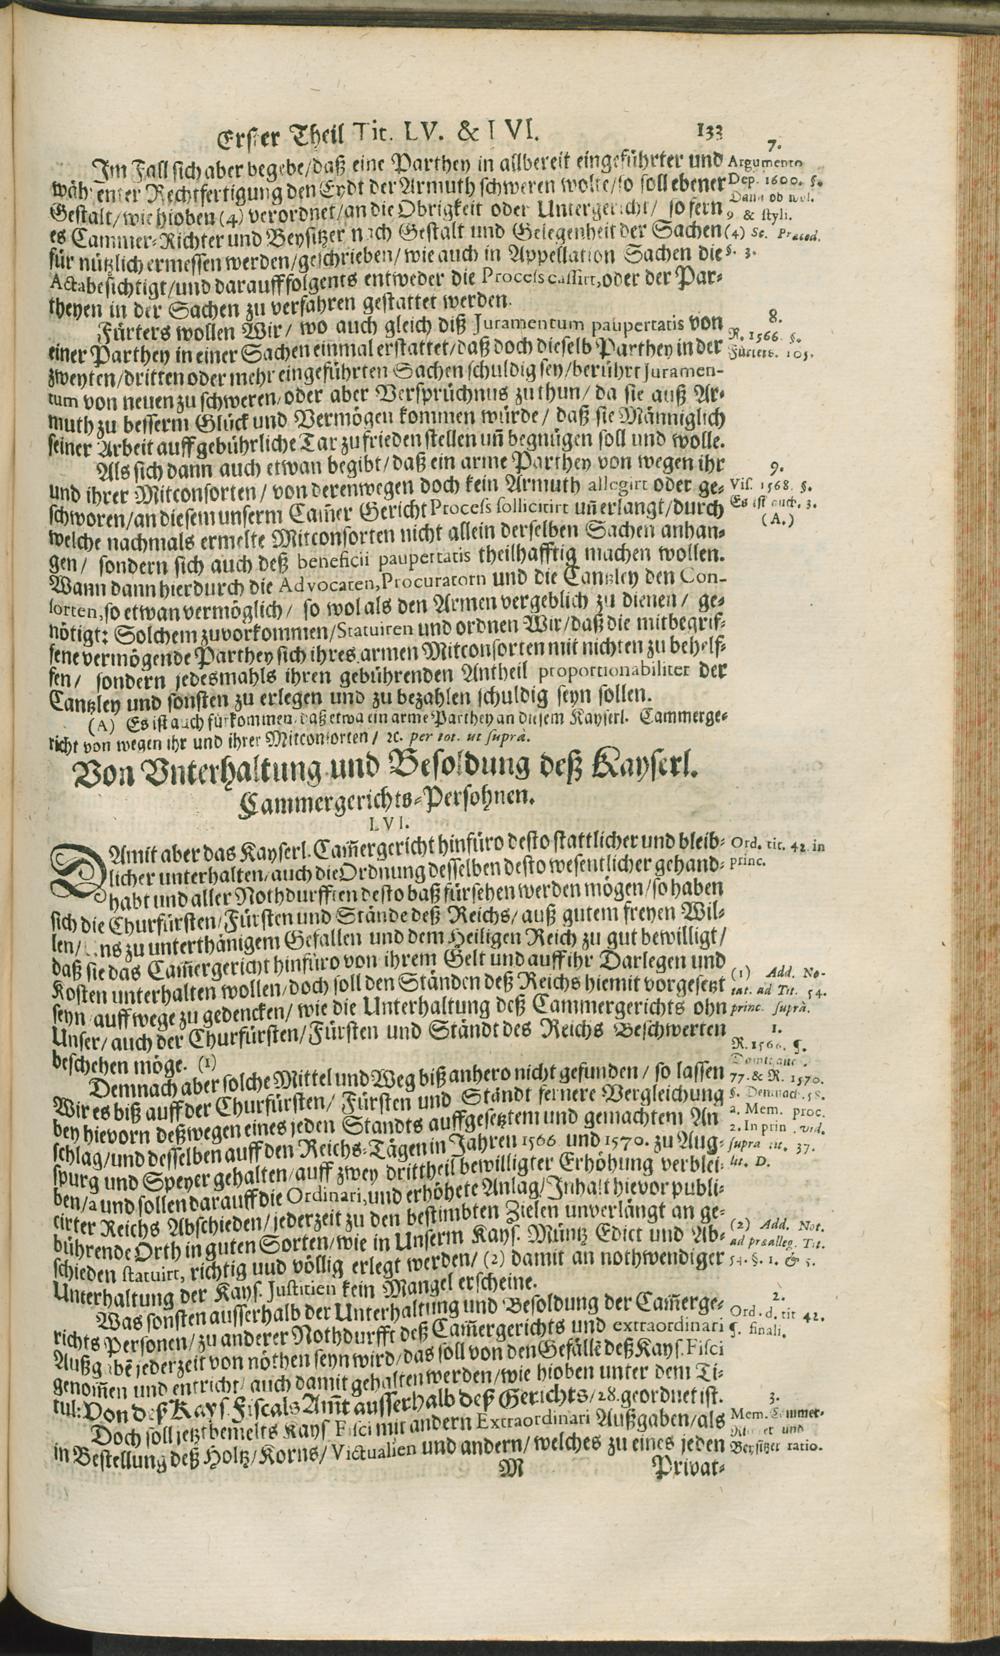 Erster Theil Tit. LV. & LVI. 133
Im Fall sich aber begebe/daß eine Parthey in allbereit eingeführter und
währenter Rechtfertigung den Eydt der Armuth schweren wolte/so soll ebener
Gestalt/wie hioben (4) verordnet/an die Obrigkeit oder Untergericht/ so fern
es Cammer-Richter und Beysitzer nach Gestalt und Gelegenheit der Sachen
für nützlich ermessen werden/geschrieben/wie auch in Appellation Sachen die
Acta besichtigt/und darauff folgents entweder die Process cassirt, oder der Par-
theyen in der Sachen zu verfahren gestattet werden.
7.
Argumento
Dep. 1600. §.
Dann ob wol.
9 & styli.
(4) Sc. Præced.
§. 3.
Fürters wollen Wir/ wo auch gleich diß Juramentum paupertatis von
einer Parthey in einer Sachen einmal erstattet/daß doch dieselb Parthey in der
zweyten/dritten oder mehr eingeführten Sachen schuldig sey/berührt Juramen-
tum von neuen zu schweren/oder aber Versprüchnus zu thun/ da sie auß Ar-
muth zu besserm Glück und Vermögen kommen würde/ daß sie Männiglich
seiner Arbeit auff gebührliche Tax zu frieden stellen uñ begnügen soll und wolle.
8.
R. 1566. §.
Fürters. 105.
Als sich dann auch etwan begibt/daß ein arme Parthey von wegen ihr
und ihrer Mitconsorten/ von derenwegen doch kein Armuth allegirt oder ge-
schworen/an diesem unserm Cam̃er Gericht Process sollicitirt uñ erlangt/durch
welche nachmals ermelte Mitconsorten nicht allein derselben Sachen anhan-
gen/ sondern sich auch deß beneficii paupertatis theilhafftig machen wollen.
Wann dann hierdurch die Advocaten, Procuratorn und die Cantzley den Con-
sorten, so etwan vermöglich/ so wol als den Armen vergeblich zu dienen/ ge-
nötigt: Solchem zuvorkommen/Statuiren und ordnen Wir/daß die mitbegrif-
fene vermögende Parthey sich ihres armen Mitconsorten mit nichten zu behelf-
fen/ sondern jedesmahls ihren gebührenden Antheil proportionabiliter der
Cantzley und sonsten zu erlegen und zu bezahlen schuldig seyn sollen.
9.
Vis. 1568. §.
Es ist auch. 3.
(A.)
(A) Es ist auch fürkommen, daß etwa ein arme Parthey an diesem Kayserl. Cammerge-
richt von wegen ihr und ihrer Mitconsorten/ ꝛc. per tot. ut suprà.
Von Vnterhaltung und Besoldung deß Kayserl.
Cammergerichts-Persohnen.
LVI.
DAmit aber das Kayserl. Cam̃ergericht hinfüro desto stattlicher und bleib-
licher unterhalten/auch die Ordnung desselben desto wesentlicher gehand-
habt und aller Nothdurfften desto baß fürsehen werden mögen/so haben
sich die Churfürsten/Fürsten und Stände deß Reichs/auß gutem freyen Wil-
len/ Uns zu unterthänigem Gefallen und dem Heiligen Reich zu gut bewilligt/
daß sie das Cam̃ergericht hinfüro von ihrem Gelt und auff ihr Darlegen und
Kosten unterhalten wollen/doch soll den Ständen deß Reichs hiemit vorgesetzt
seyn auff wege zu gedencken/ wie die Unterhaltung deß Cammergerichts ohn
Unser/auch der Churfürsten/Fürsten und Ständt des Reichs Beschwerten
beschehen möge. (1)
Ord. tit. 42. in
princ.
(1) Add. No-
tat. ad Tit. 54.
princ. suprà.
Demnach aber solche Mittel und Weg biß anhero nicht gefunden/ so lassen
Wir es biß auff der Churfürsten/ Fürsten und Ständt fernere Vergleichung
bey hievorn deßwegen eines jeden Standts auffgesetztem und gemachtem An-
schlag/und desselben auff den Reichs-Tägen in Jahren 1566 und 1570. zu Aug-
spurg und Speyer gehalten/auff zwey drittheil bewilligter Erhöhung verblei-
ben/a und sollen darauff die Ordinari, und erhöhete Anlag/Inhalt hievor publi-
cirter Reichs Abschieden/jederzeit zu den bestimbten Zielen unverlängt an ge-
bührende Orth in guten Sorten/wie in Unserm Kays. Müntz Edict und Ab-
schieden statuirt, richtig und völlig erlegt werden/ (2) damit an nothwendiger
Unterhaltung der Kays. Justitien kein Mangel erscheine.
1.
R. 1566. §.
Damit auc
77. & R. 1570.
§. Demnach. 58.
a. Mem. proc.
2. In prin. vid.
supra tit. 37.
lit. D.
(2) Add. Not.
ad præalleg. Tit.
54. §. 1. & 5.
Was sonsten ausserhalb der Unterhaltung und Besoldung der Cam̃erge-
richts Personen/zu anderer Nothdurfft deß Cam̃ergerichts und extraordinari
Außgabẽ jederzeit von nöthen seyn wird/das soll von den Gefällẽ deß Kays. Fisci
genom̃en und entricht/auch damit gehalten werden/wie hioben unter dem Ti-
tul: Von deß Kays. Fiscals Amt ausserhalb deß Gerichts/28. geordnet ist.
2.
Ord. d. tit 42.
§. finali.
Doch soll jetztbemelts Kays Fisci mit andern Extraordinari Außgaben/als
in Bestellung deß Holtz/Korns/Victualien und andern/welches zu eines jeden
3.
Mem. Cammer-
Richter und
Beysitzer ratio.
M Privat-